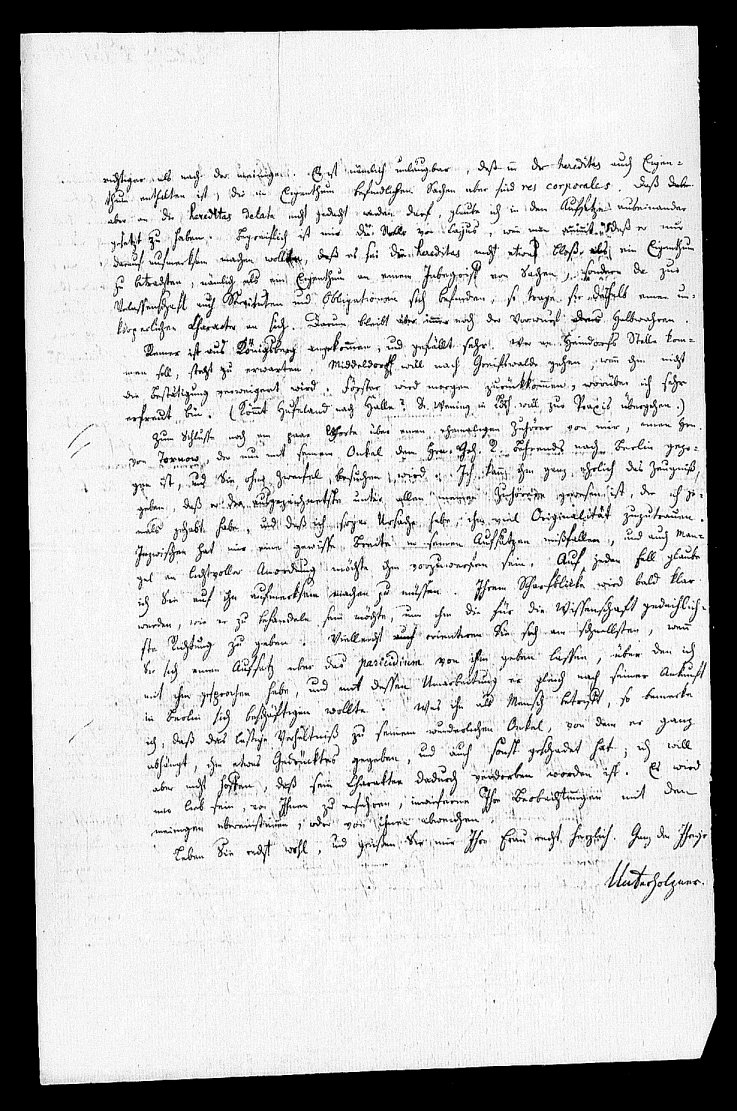 richtiger als nach der meinigen. Es ist nämlich unläugbar, daß in der hereditas auch Eigen-
thum enthalten ist, die im Eigenthum befindlichen Sachen aber sind res corporales. Daß dabei
aber an die hereditas delata nicht gedacht werden darf, glaube ich in dem Aufsatze auseinander
gesetzt zu haben. Begreiflich ist mir die Stelle von Cajus, wie man annimmt, daß er nur
darauf aufmerksam machen wollte, daß es sei die hereditas nicht etwa bloß als ein Eigenthum
zu betrachten, nämlich als ein Eigenthum an einem Inbegriff von Sachen, sondern da zur
Verlassenschaft auch Servituten und Obligationen sich befinden, so trage sie deshalb einen un-
körperlichen Charakter an sich. Darum bleibt aber immer noch der Vorwurf des Halbwahren.
ist aus Königsberg angekommen, und gefällt sehr. Wer an Heindorfs Stelle kom-
men soll, steht zu erwarten. Middeldorpff will nach Greifswalde gehen, wenn ihm nicht
die Bestätigung verweigert wird. Förster wird morgen zurückkommen, worüber ich sehr
erfreut bin. (Kömmt Hufeland nach Halle? will zur Praxis übergehen.)
Zum Schlusse noch ein paar Worte über einen ehemaligen Zuhörer von mir, einen Hrn.
von Tornow, der nun mit seinem Onkel dem Hrn. Geh. R. Behrends nach Berlin gezo-
gen ist, und Sie ohne Zweifel besuchen wird. Ich kann ihm ganz ehrlich das Zeugniß
geben, daß er der ausgezeichnetste unter allen meinen Zuhörern gewesen ist, die ich je-
mals gehabt habe, und daß ich sogar Ursache habe, ihm viel Originalität zuzutrauen.
Inzwischen hat mir eine gewisse Breite in seinen Aufsätzen mißfallen, und auch Man-
gel an lichtvoller Anordnung möchte ihm vorzuwerfen sein. Auf jeden Fall glaube
ich Sie auf ihn aufmerksam machen zu müssen. Ihrem Scharfblicke wird bald klar
werden, wie er zu behandeln sein möchte, um ihm die für die Wissenschaft gedeihlich-
ste Richtung zu geben. Vielleicht auch orientieren Sie sich am schnellsten, wenn
Sie sich einen Aufsatz über das paricidium von ihm geben lassen, über den ich
mit ihm gesprochen habe, und mit dessen Umarbeitung er gleich nach seiner Ankunft
in Berlin sich beschäftigen wollte. Was ihn als Mensch betrifft, so bemerke
ich, daß das lästige Verhältniß zu seinem wunderlichen Onkel, von dem er ganz
abhängt, ihm etwas Gedrücktes gegeben, und auch sonst geschadet hat; ich will
aber nicht hoffen, daß sein Charakter dadurch verdorben worden ist. Es wird
mir lieb sein, von Ihnen zu erfahren, inwiefern Ihre Beobachtungen mit den
meinigen übereinstimmen, oder von ihnen abweichen.
Leben Sie recht wohl, und grüßen Sie mir Ihre Frau recht herzlich. Ganz der Ihrige
Unterholzner.